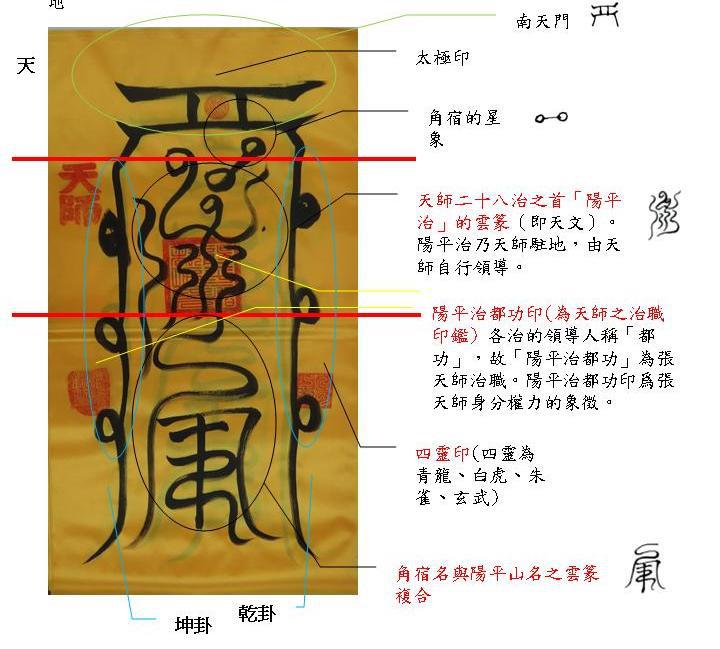 地
天
南天門
太極印
角宿的星
象
天師二十八治之首「陽平
治」的雲篆（即天文）。
陽平治乃天師駐地，由天
師自行領導。
陽平治都功印(為天師之治職
印鑑) 各治的領導人稱「都
功」，故「陽平治都功」為張
天師治職。陽平治都功印爲張
天師身分權力的象徵。
四靈印(四靈為
青龍、白虎、朱
雀、玄武)
角宿名與陽平山名之雲篆
複合
坤卦
乾卦
天師